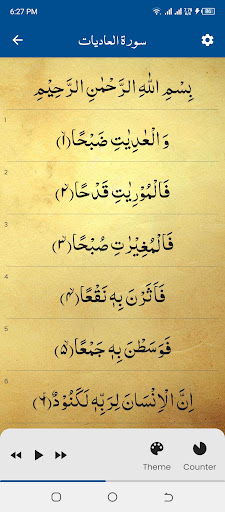 6:27 PM
سورة العاديات
بِسْمِ اللّٰهِ الرَّحْمٰنِ الرَّحِيْمِ
1
وَالْعٰدِيٰتِ ضَبْحًا ﴿۱﴾
2
فَالْمُوْرِيٰتِ قَدْحًا ﴿۲﴾
3
فَالْمُغِيْرٰتِ صُبْحًا ﴿۳﴾
4
فَاَثَرْنَ بِهٖ نَقْعًا ﴿۴﴾
5
فَوَسَطْنَ بِهٖ جَمْعًا ﴿۵﴾
6
اِنَّ الْاِنْسَانَ لِرَبِّهٖ لَكَنُوْدٌ ﴿۶﴾
Theme
Counter